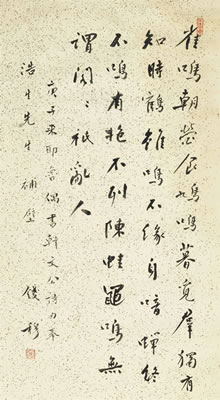 雀鳴朝營食鳩鳴暮覓羣獨有
知時鶴雖鳴不緣身喑蟬終
不鳴有抱不列陳蛙黽鳴無
謂閣〻祇亂人
庚子來耶魯偶書韓文公詩 奉
浩生先生補壁 錢穆